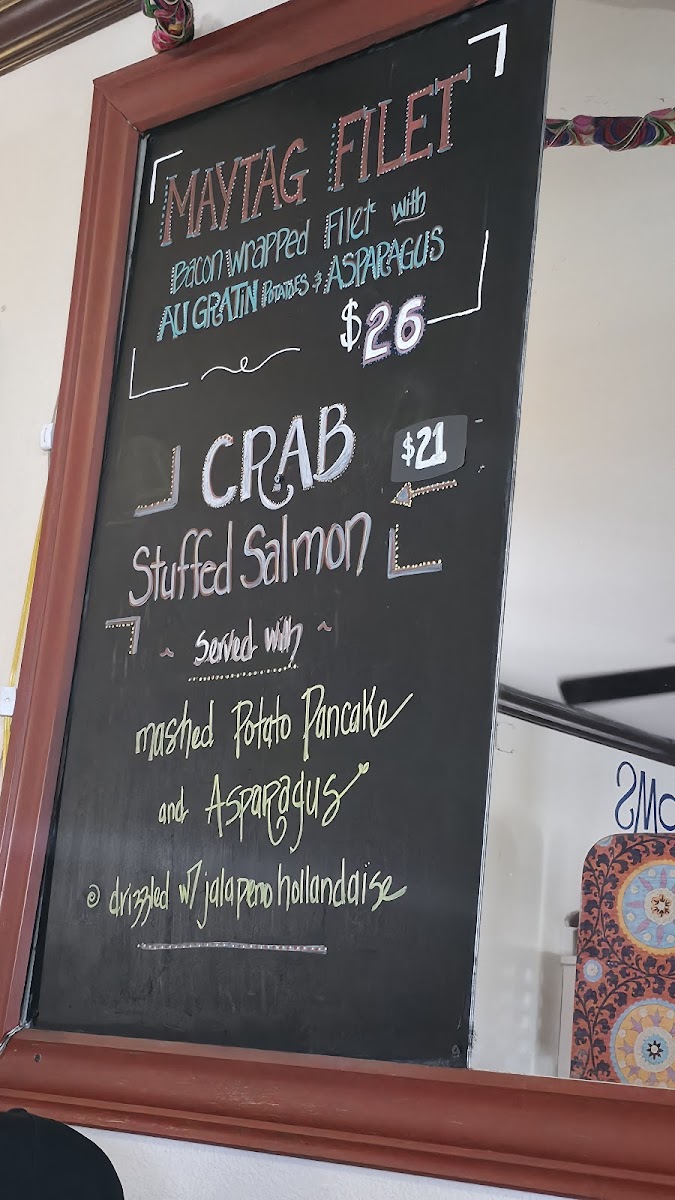 MAYTAG FILET
Bacon wrapped Filet with
AU GRATIN POTATOES & ASPARAGUS
$26
CRAB
$21
Stuffed Salmon
~ Served with ~
mashed Potato Pancake
and Asparagus
drizzled w/ jalapeno hollandaise